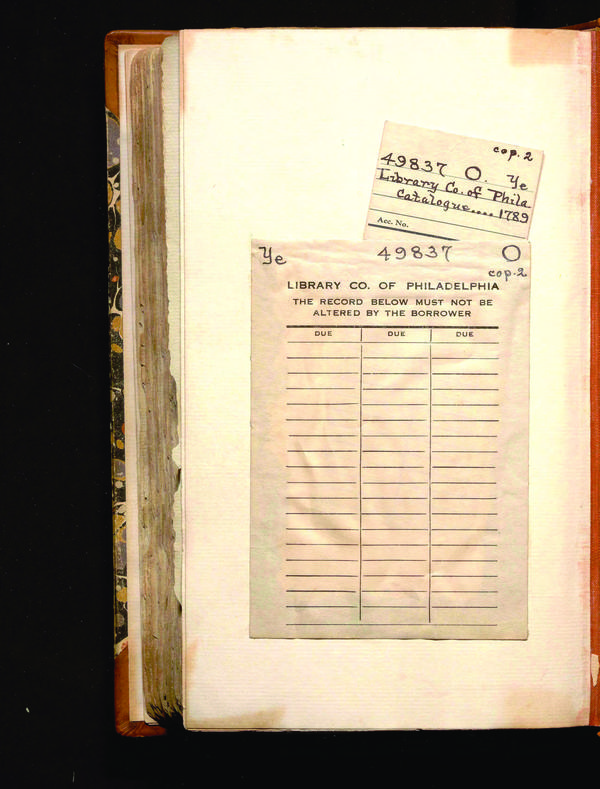 cop. 2
49837 O. Ye
Library Co. of Phila
Catalogue.... 1789
Acc. No.
Ye 49837 O
cop. 2
LIBRARY CO. OF PHILADELPHIA
THE RECORD BELOW MUST NOT BE
ALTERED BY THE BORROWER
DUE DUE DUE